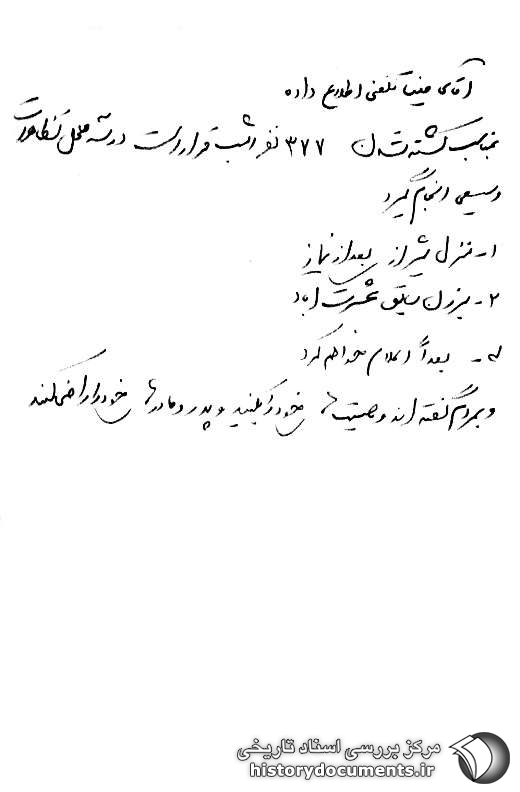 آقای تلفنی اطلاع داده
بمناسبت کشته شدن ۳۷۷ نفر امشب قرار است در سه محل تظاهرات
وسیعی انجام گیرد
۱- منزل شیراز بعد از نماز
۲- عشرت آباد
۳- بعداً اعلام خواهم کرد
و بمردم گفته اند وصیت خود را بکنید و پدر و مادرها خود را راضی کنند
مرکز بررسی اسناد تاریخی
historydocuments.ir